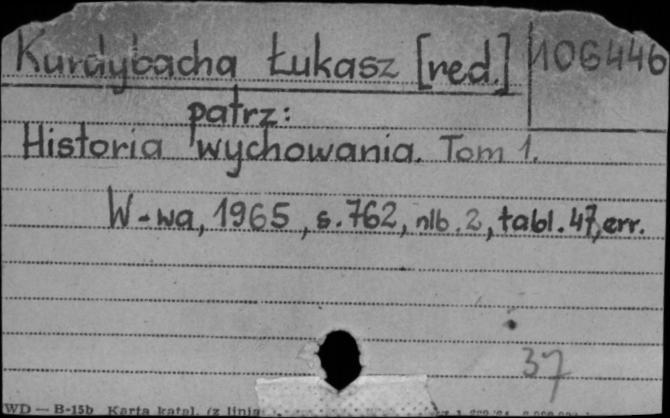 Kurdybacha Łukasz [red.] 106446
patrz:
Historia wychowania. Tom 1.
W-wa, 1965, s. 762, nlb. 2, tabl. 47, err.
37
WD — B-15b Karta katal. (z linia